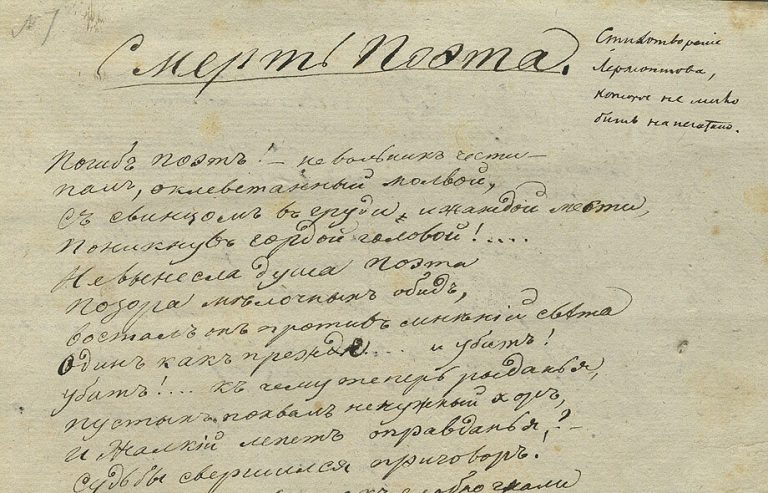 № 7
Смерть Поэта.
Стихотворенiе
Лермонтова,
которое не могло
быть напечатано.
Погибъ поэтъ! — невольникъ чести —
палъ, оклеветанный молвой,
съ свинцомъ въ груди, и жаждой мести,
поникнувъ гордой головой!....
Невынесла душа поэта
позора мѣлочныхъ обидъ,
возсталъ онъ противъ мнѣнiй свѣта
Одинъ какъ прежде.... и убитъ!
убитъ!... къ чему теперь рыданья,
пустыхъ похвалъ ненужный хоръ,
и Жалкiй лепетъ оправданья,?—
Судьбы свершился приговоръ!
злобно гнали